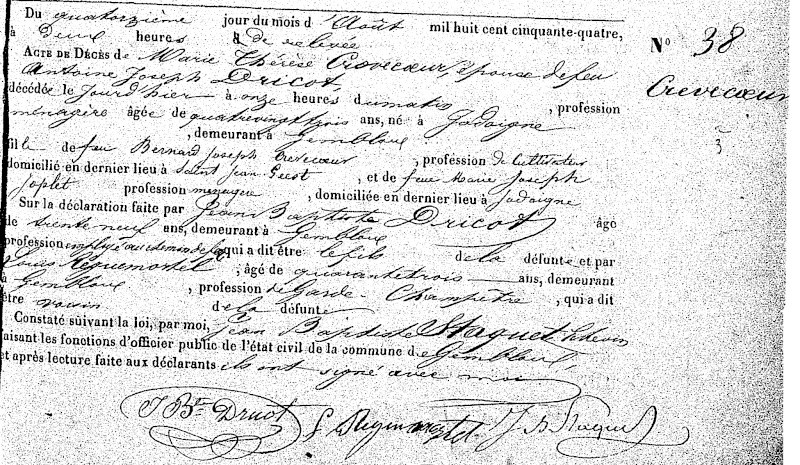 Du quatorzième jour du mois d'Août mil huit cent cinquante-quatre,
à deux heures de relevée
ACTE DE DÉCÈS de Marie Thérèse Crevecœur, épouse de feu
Antoine Joseph Dricot,
décédée le jourd'hier à onze heures du matin, profession
ménagère âgée de quatrevingt trois ans, né à Jodoigne
, demeurant à Gembloux
fille de feu Bernard Joseph Crevecœur, profession de Cultivateur
domicilié en dernier lieu à Saint Jean Geest, et de feue Marie Joseph
Joplet profession ménagère, domiciliée en dernier lieu à Jodaigne
Sur la déclaration faite par Jean Baptiste Dricot âgé
de trente neuf ans, demeurant à Gembloux
profession employé au chemin de fer, qui a dit être le fils de la défunte et par
Louis, âgé de quarante trois ans, demeurant
à Gembloux, profession de Garde-Champêtre, qui a dit
être voisin de la défunte
Constaté suivant la loi, par moi, Jean Baptiste Staquet Echevin
faisant les fonctions d'officier public de l'état civil de la commune de Gembloux,
et après lecture faite aux déclarants ils ont signé avec moi
J Bte Dricot J B Staquet
N° 38
Crevecœur